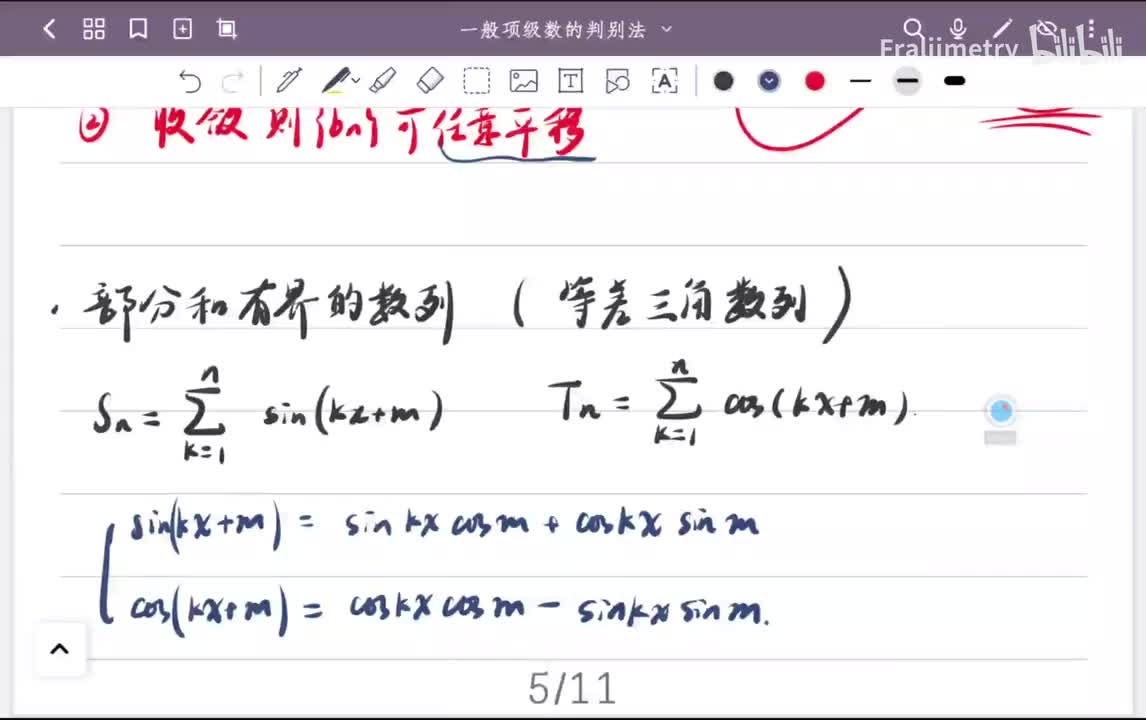 一般项级数的判别法
Eraliimetry bilibili
② 收敛则{bn}可任意平移
· 部分和有界的数列 (等差三角数列)
Sn = ∑_{k=1}^{n} sin(kx+m) Tn = ∑_{k=1}^{n} cos(kx+m).
sin(kx+m) = sin kx cos m + cos kx sin m
cos(kx+m) = cos kx cos m - sin kx sin m.
5/11